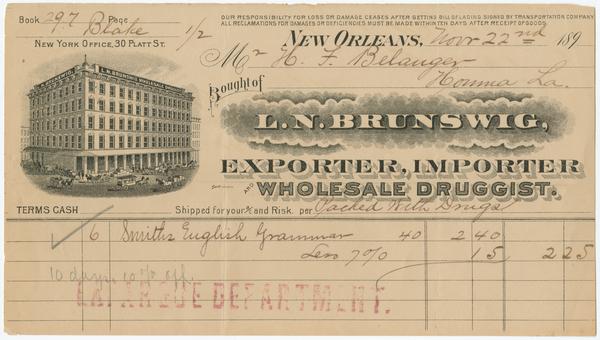 Book 297 Page
Blake 1/2
OUR RESPONSIBILITY FOR LOSS OR DAMAGE CEASES AFTER GETTING BILL OF LADING SIGNED BY TRANSPORTATION COMPANY
ALL RECLAMATIONS FOR DAMAGES OR DEFICIENCIES MUST BE MADE WITHIN TEN DAYS AFTER RECEIPT OF GOODS.
NEW YORK OFFICE, 30 PLATT ST.
NEW ORLEANS, Novr 22nd 189
Mr H. F. Belanger
Houma La.
Bought of
L. N. BRUNSWIG,
EXPORTER, IMPORTER
AND WHOLESALE DRUGGIST.
TERMS CASH
Shipped for your a/c and Risk per Packed With Drugs
6 Smiths English Grammar 40 2 40
Less 7% 15 2 25
10 days 10% off.
LAFARGUE DEPARTMENT.